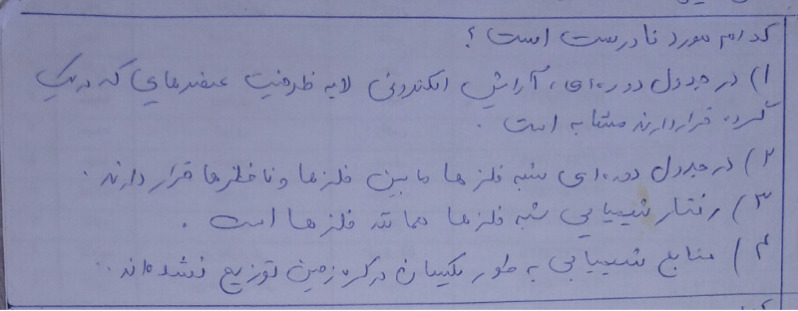 کدام مورد نادرست است ؟
۱) در جدول دوره‌ای، آرایش الکترونی لایه ظرفیت عنصرهایی که در یک
گروه قرار دارند مشابه است .
۲) در جدول دوره‌ای شبه فلزها مابین فلزها و نافلزها قرار دارند .
۳) رفتار شیمیایی شبه فلزها همانند فلزها است .
۴) منابع شیمیایی به طور یکسان در کره زمین توزیع نشده‌اند .